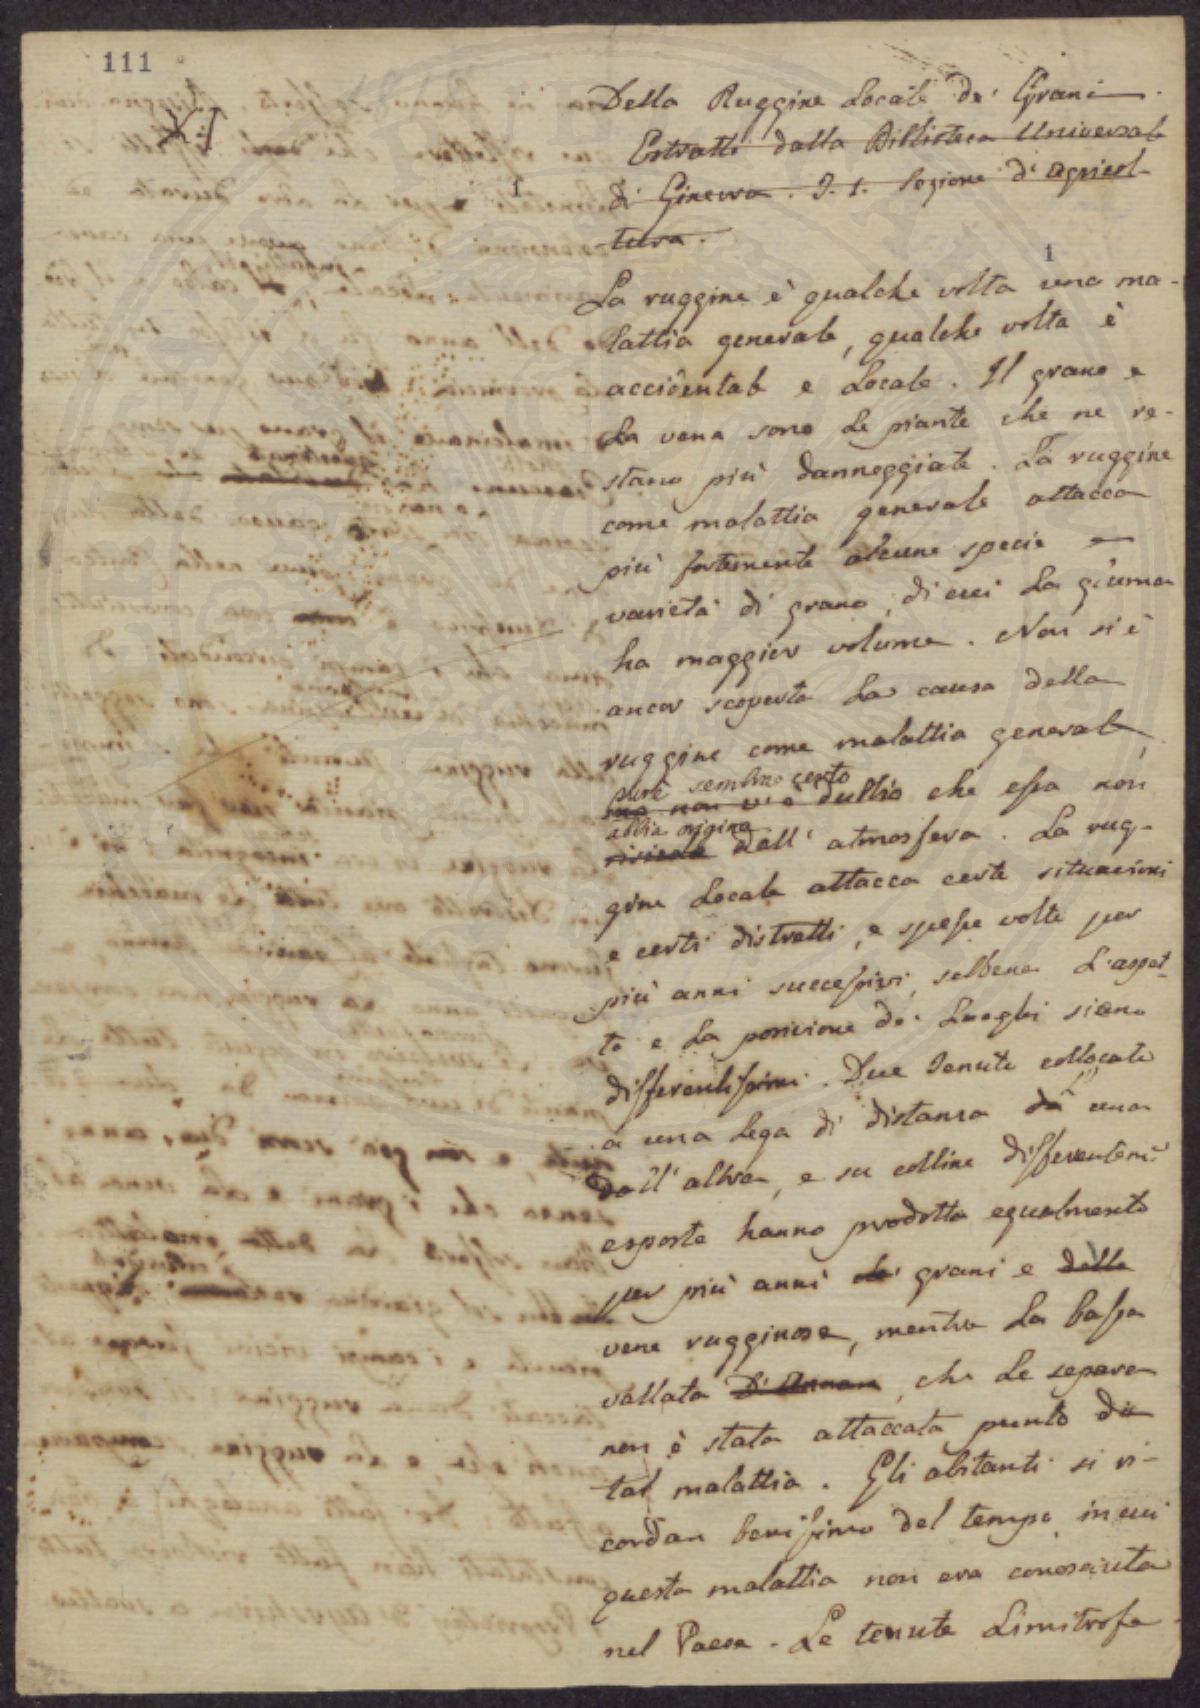 111
X.I
Della Ruggine Locale de' Grani.
Estratti dalla Biblioteca Universale
di Ginevra. T. 1. Sezione d'agricol-
tura.
1
1
La ruggine è qualche volta una ma-
lattia generale, qualche volta è
accidentale e Locale. Il grano e
La vena sono Le piante che ne re-
stano più danneggiate. La ruggine
come malattia generale attacca
più fortemente alcune specie e
varietà di grano, di cui La giuma
ha maggior volume. Non si è
ancor scoperta La causa della
ruggine come malattia generale,
pure sembra certo
ma non v'è dubbio che essa non
abbia origine
dall' atmosfera. La rug-
gine Locale attacca certe situazioni
e certi distretti, e spesse volte per
più anni successivi, sebbene L'aspet-
to e La posizione de' Luoghi siano
differentissimi. Due Tenute collocate
a una Lega di distanza da L'una
dall'altra, e su colline differentem.e
esposte hanno prodotto egualmente
per più anni de' grani e delle
vene rugginose, mentre La bassa
vallata D'Annan, che Le separa
non è stata attaccata punto da
tal malattia. Gli abitanti si ri-
cordan benissimo del tempo in cui
questa malattia non era conosciuta
nel Paese. Le tenute Limitrofe